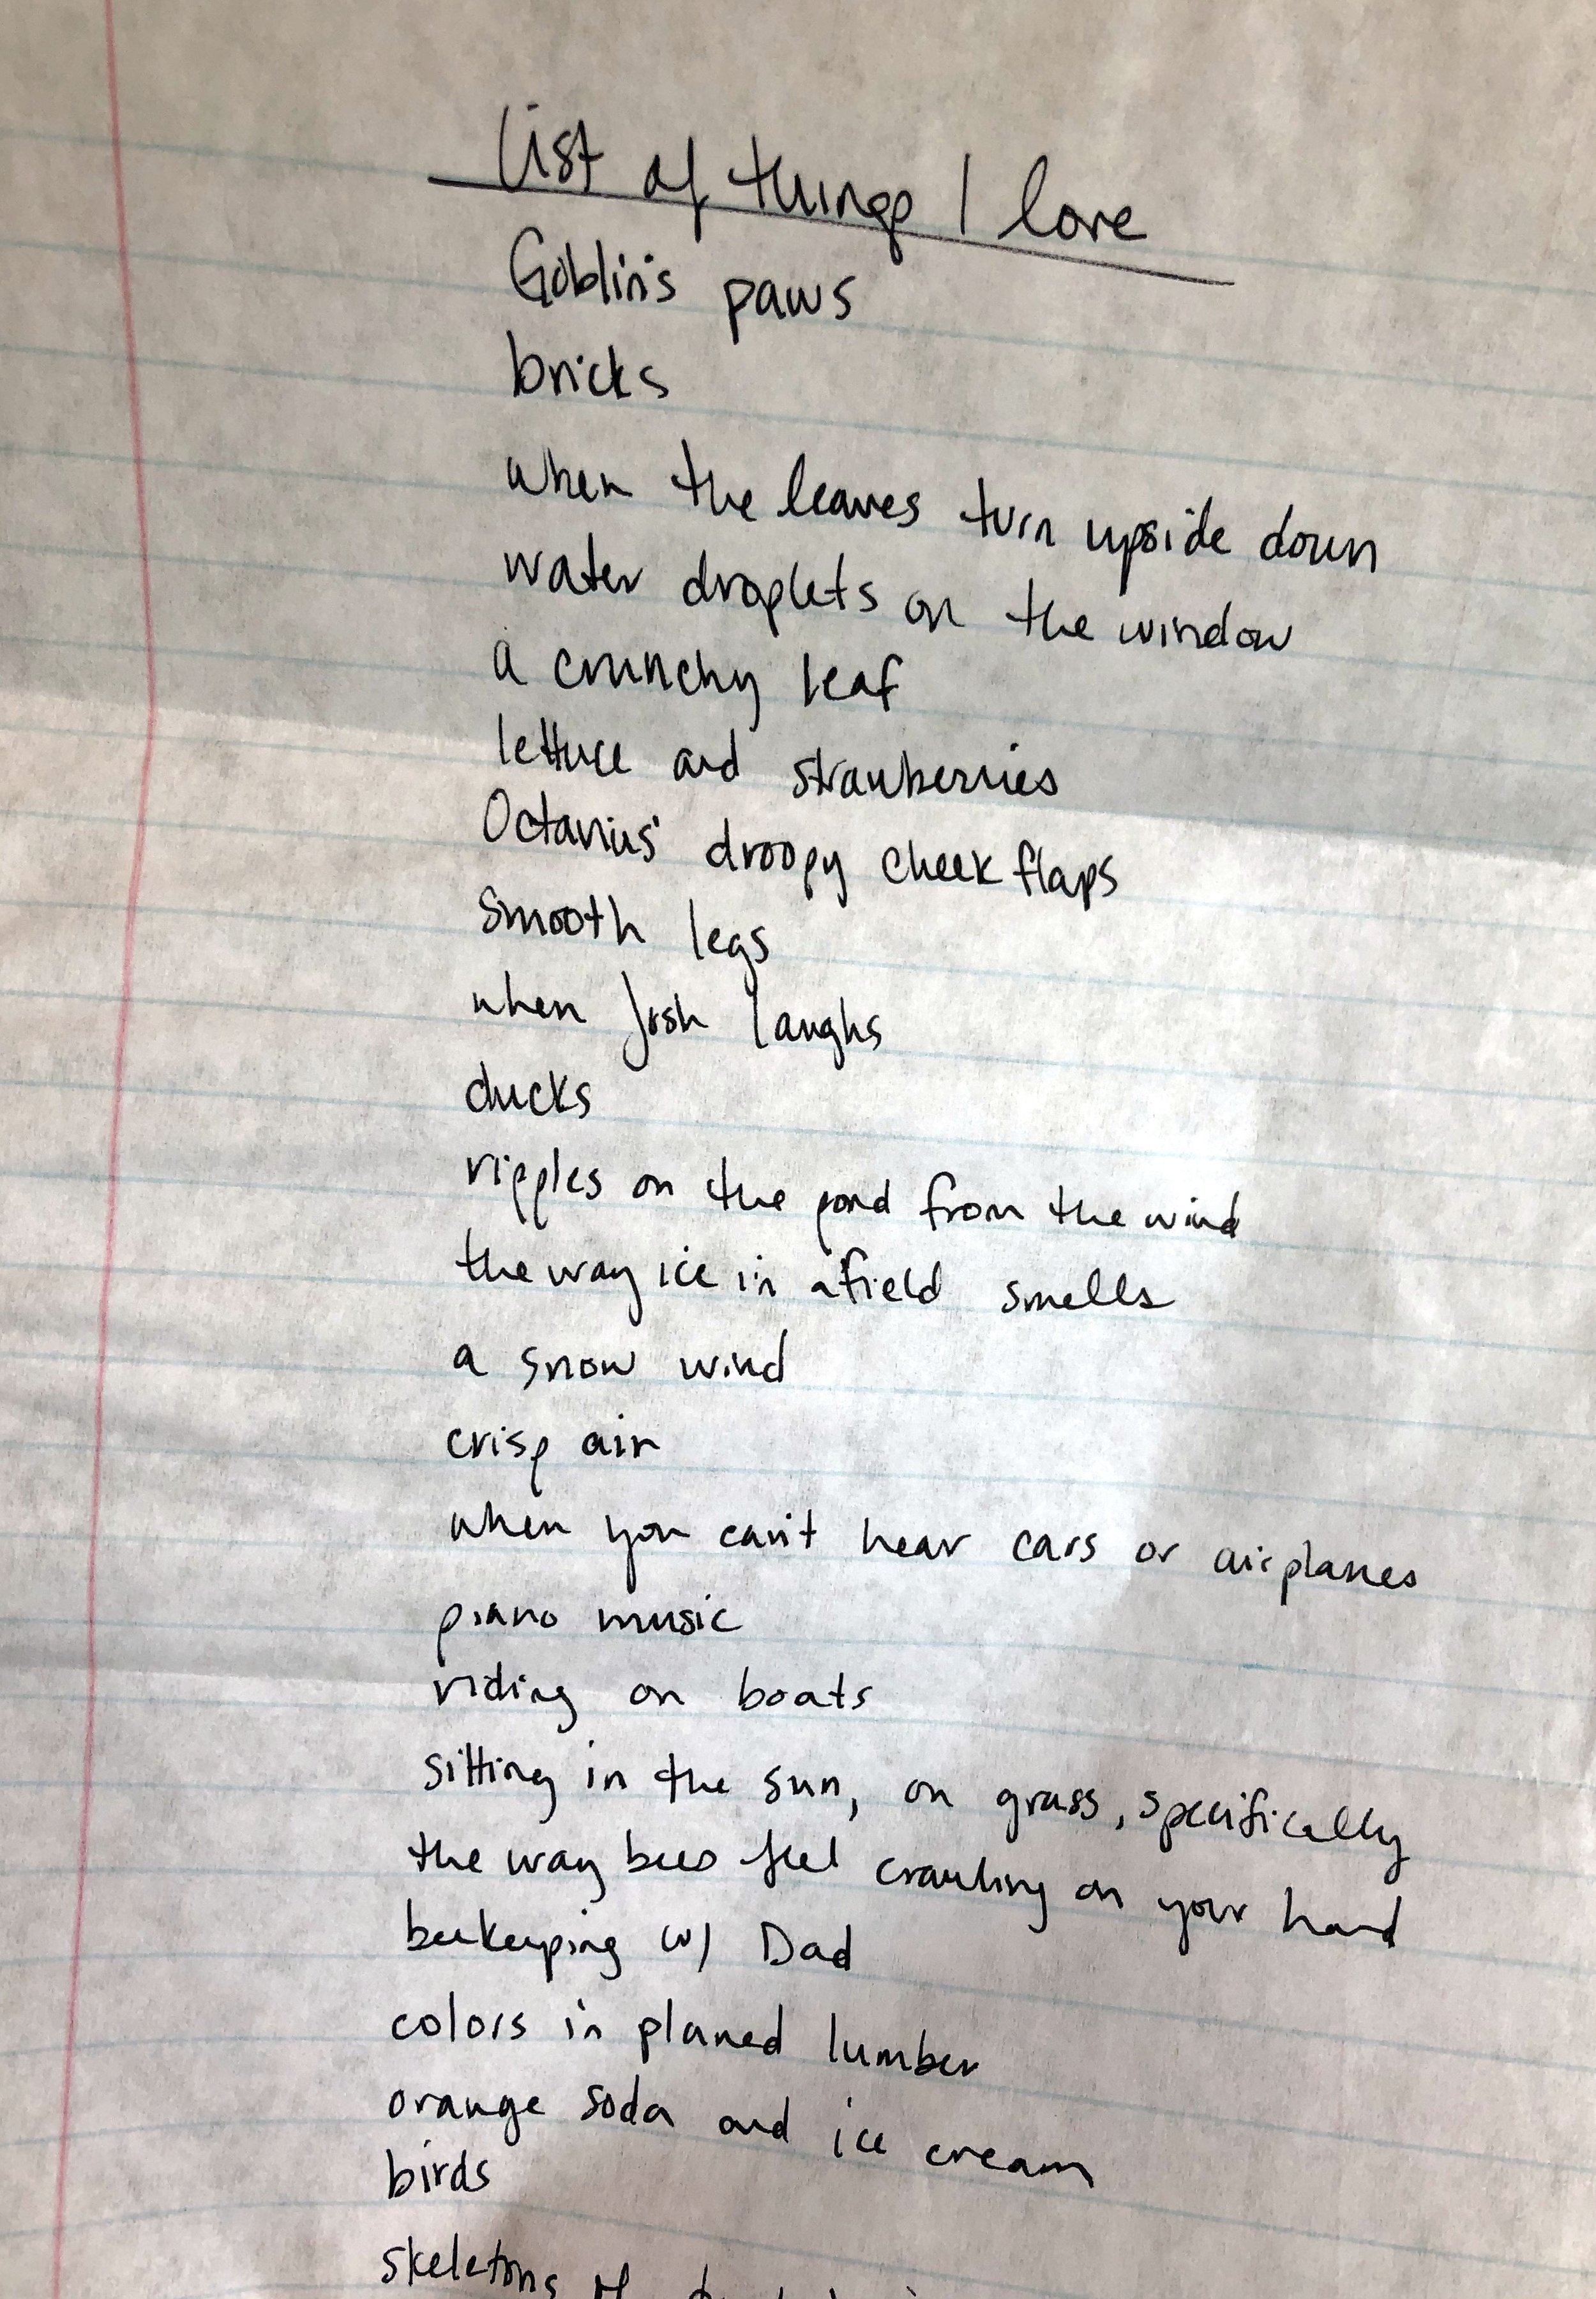 List of things I love
Goblin's paws
bricks
when the leaves turn upside down
water droplets on the window
a crunchy leaf
lettuce and strawberries
Octavius' droopy cheek flaps
smooth legs
when Josh laughs
ducks
ripples on the pond from the wind
the way ice in a field smells
a snow wind
crisp air
when you can't hear cars or airplanes
piano music
riding on boats
sitting in the sun, on grass, specifically
the way bees feel crawling on your hand
beekeeping w/ Dad
colors in planed lumber
orange soda and ice cream
birds
skeletons of